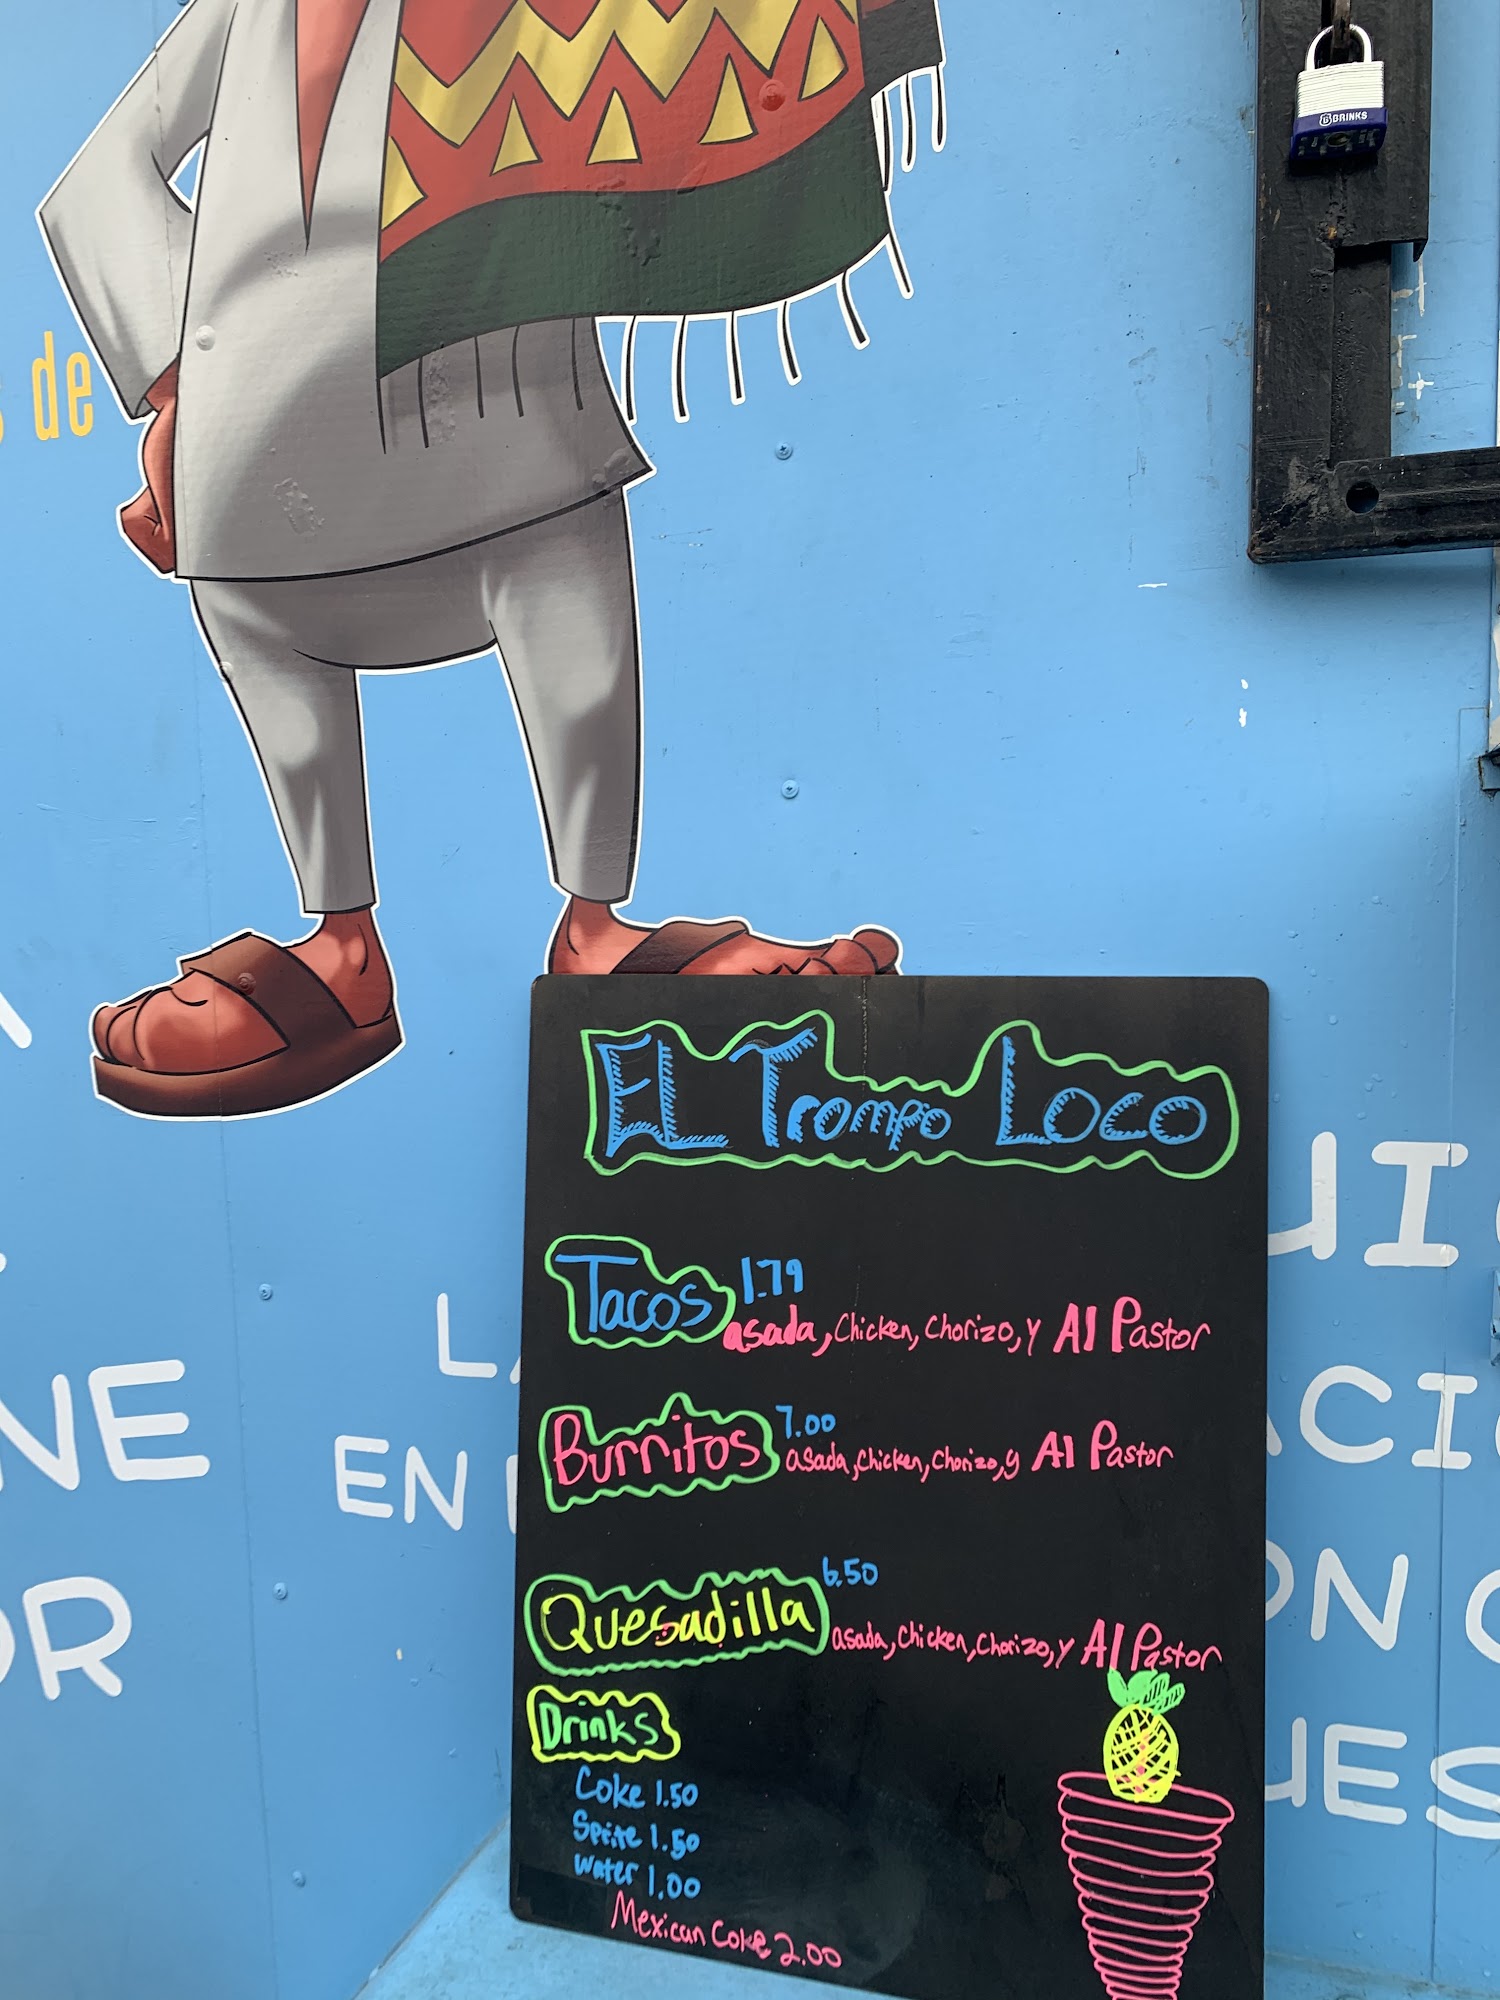 BRINKS
de
EL Trompo Loco
Tacos 1.79
asada, Chicken, Chorizo, y Al Pastor
Burritos 7.00
asada, Chicken, Chorizo, y Al Pastor
Quesadilla 6.50
asada, Chicken, Chorizo, y Al Pastor
Drinks
Coke 1.50
Sprite 1.50
Water 1.00
Mexican Coke 2.00
NE
OR
EN
UI
ACI
ON
UES